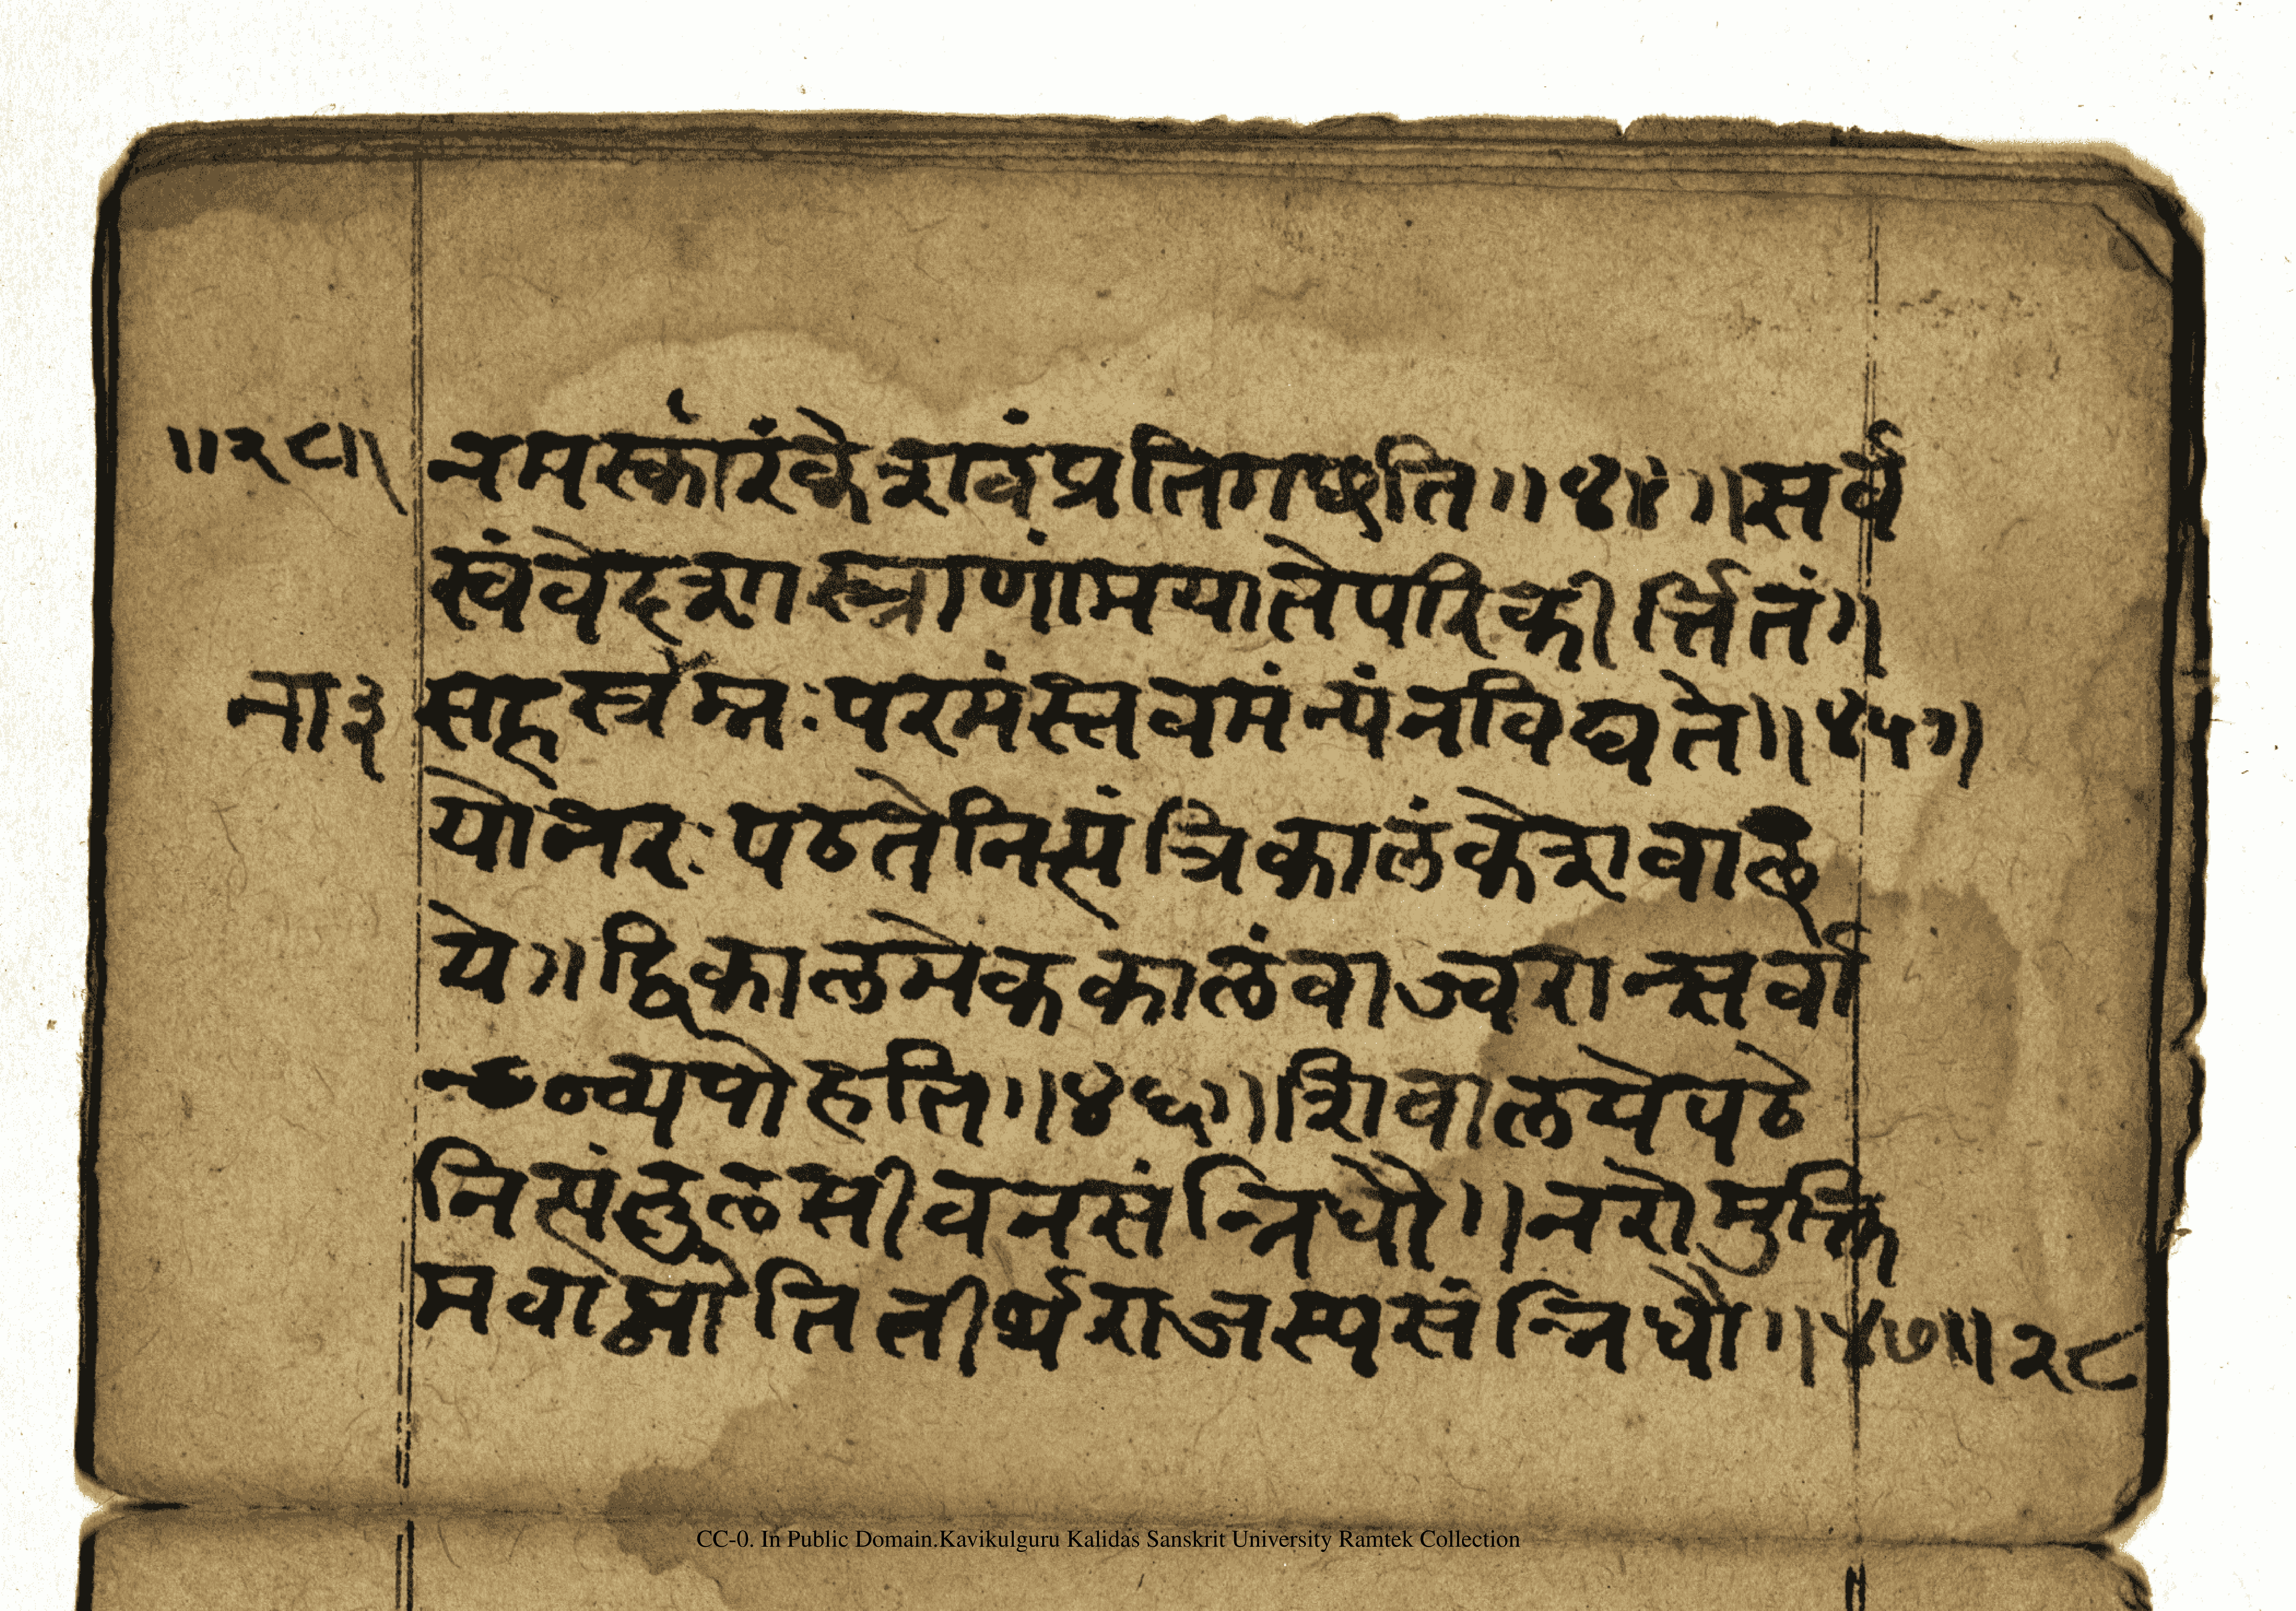 ॥२८॥ नमस्कारंकेशवंप्रतिगछति॥४४॥सर्व
स्वंवेदशास्त्राणांमयातेपरिकीर्त्तितं॥
ना३ सहस्त्रेम्नःपरमंस्तवमंन्यंनविद्यते॥४५॥
योनरःपठतेनित्यंत्रिकालंकेशवाल
ये॥द्विकालमेककालंवाज्वरान्सर्वा
व्यपोहति॥४६॥शिवालयेपठे
नित्यंतुलसीवनसंन्निधौ॥नरोमुक्ति
मवाप्नोतितीर्थराजस्यसंन्निधौ॥४७॥२८
CC-0. In Public Domain.Kavikulguru Kalidas Sanskrit University Ramtek Collection